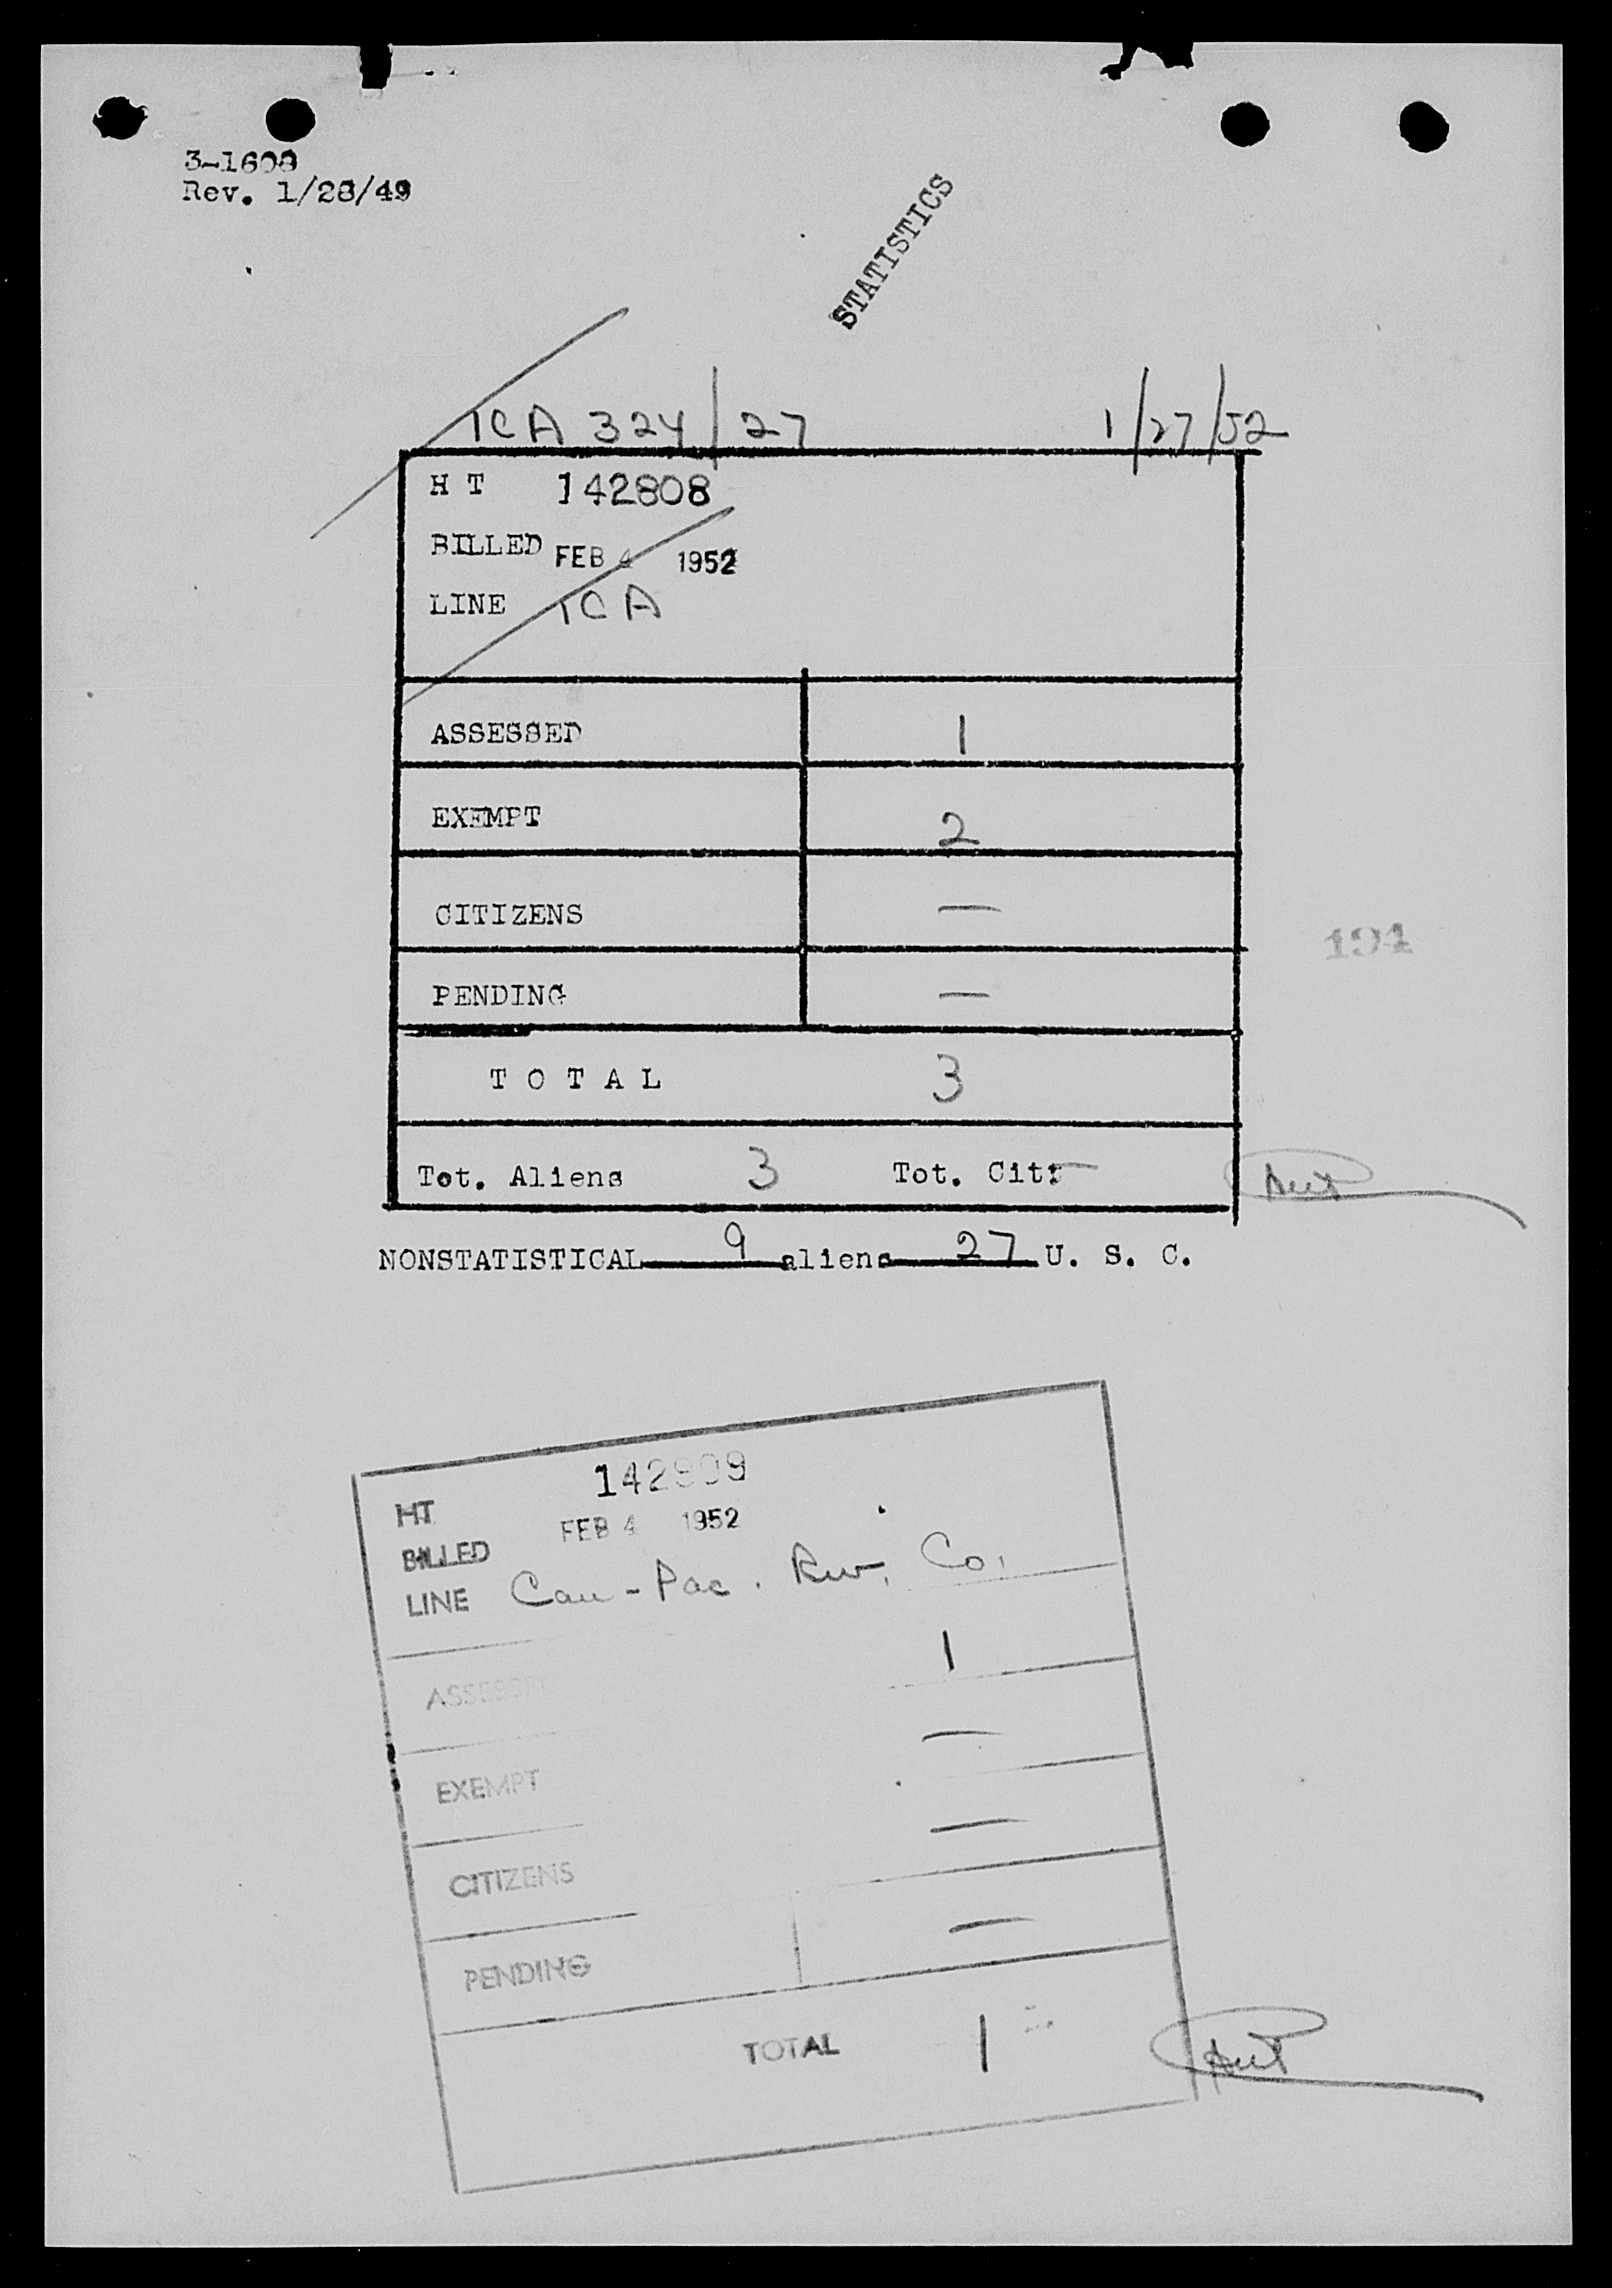 3-1608
Rev. 1/28/49
STATISTICS
TCA 324/27 1/27/52
H T 142808
BILLED FEB 4 1952
LINE TCA
ASSESSED 1
EXEMPT 2
CITIZENS —
PENDING —
194
T O T A L 3
Tot. Aliens 3 Tot. Cit: —
NONSTATISTICAL 9 aliens 27 U. S. C.
142809
HT
BILLED FEB 4 1952
LINE Can-Pac. Rw. Co.
ASSESSED 1
EXEMPT —
CITIZENS —
PENDING —
TOTAL 1